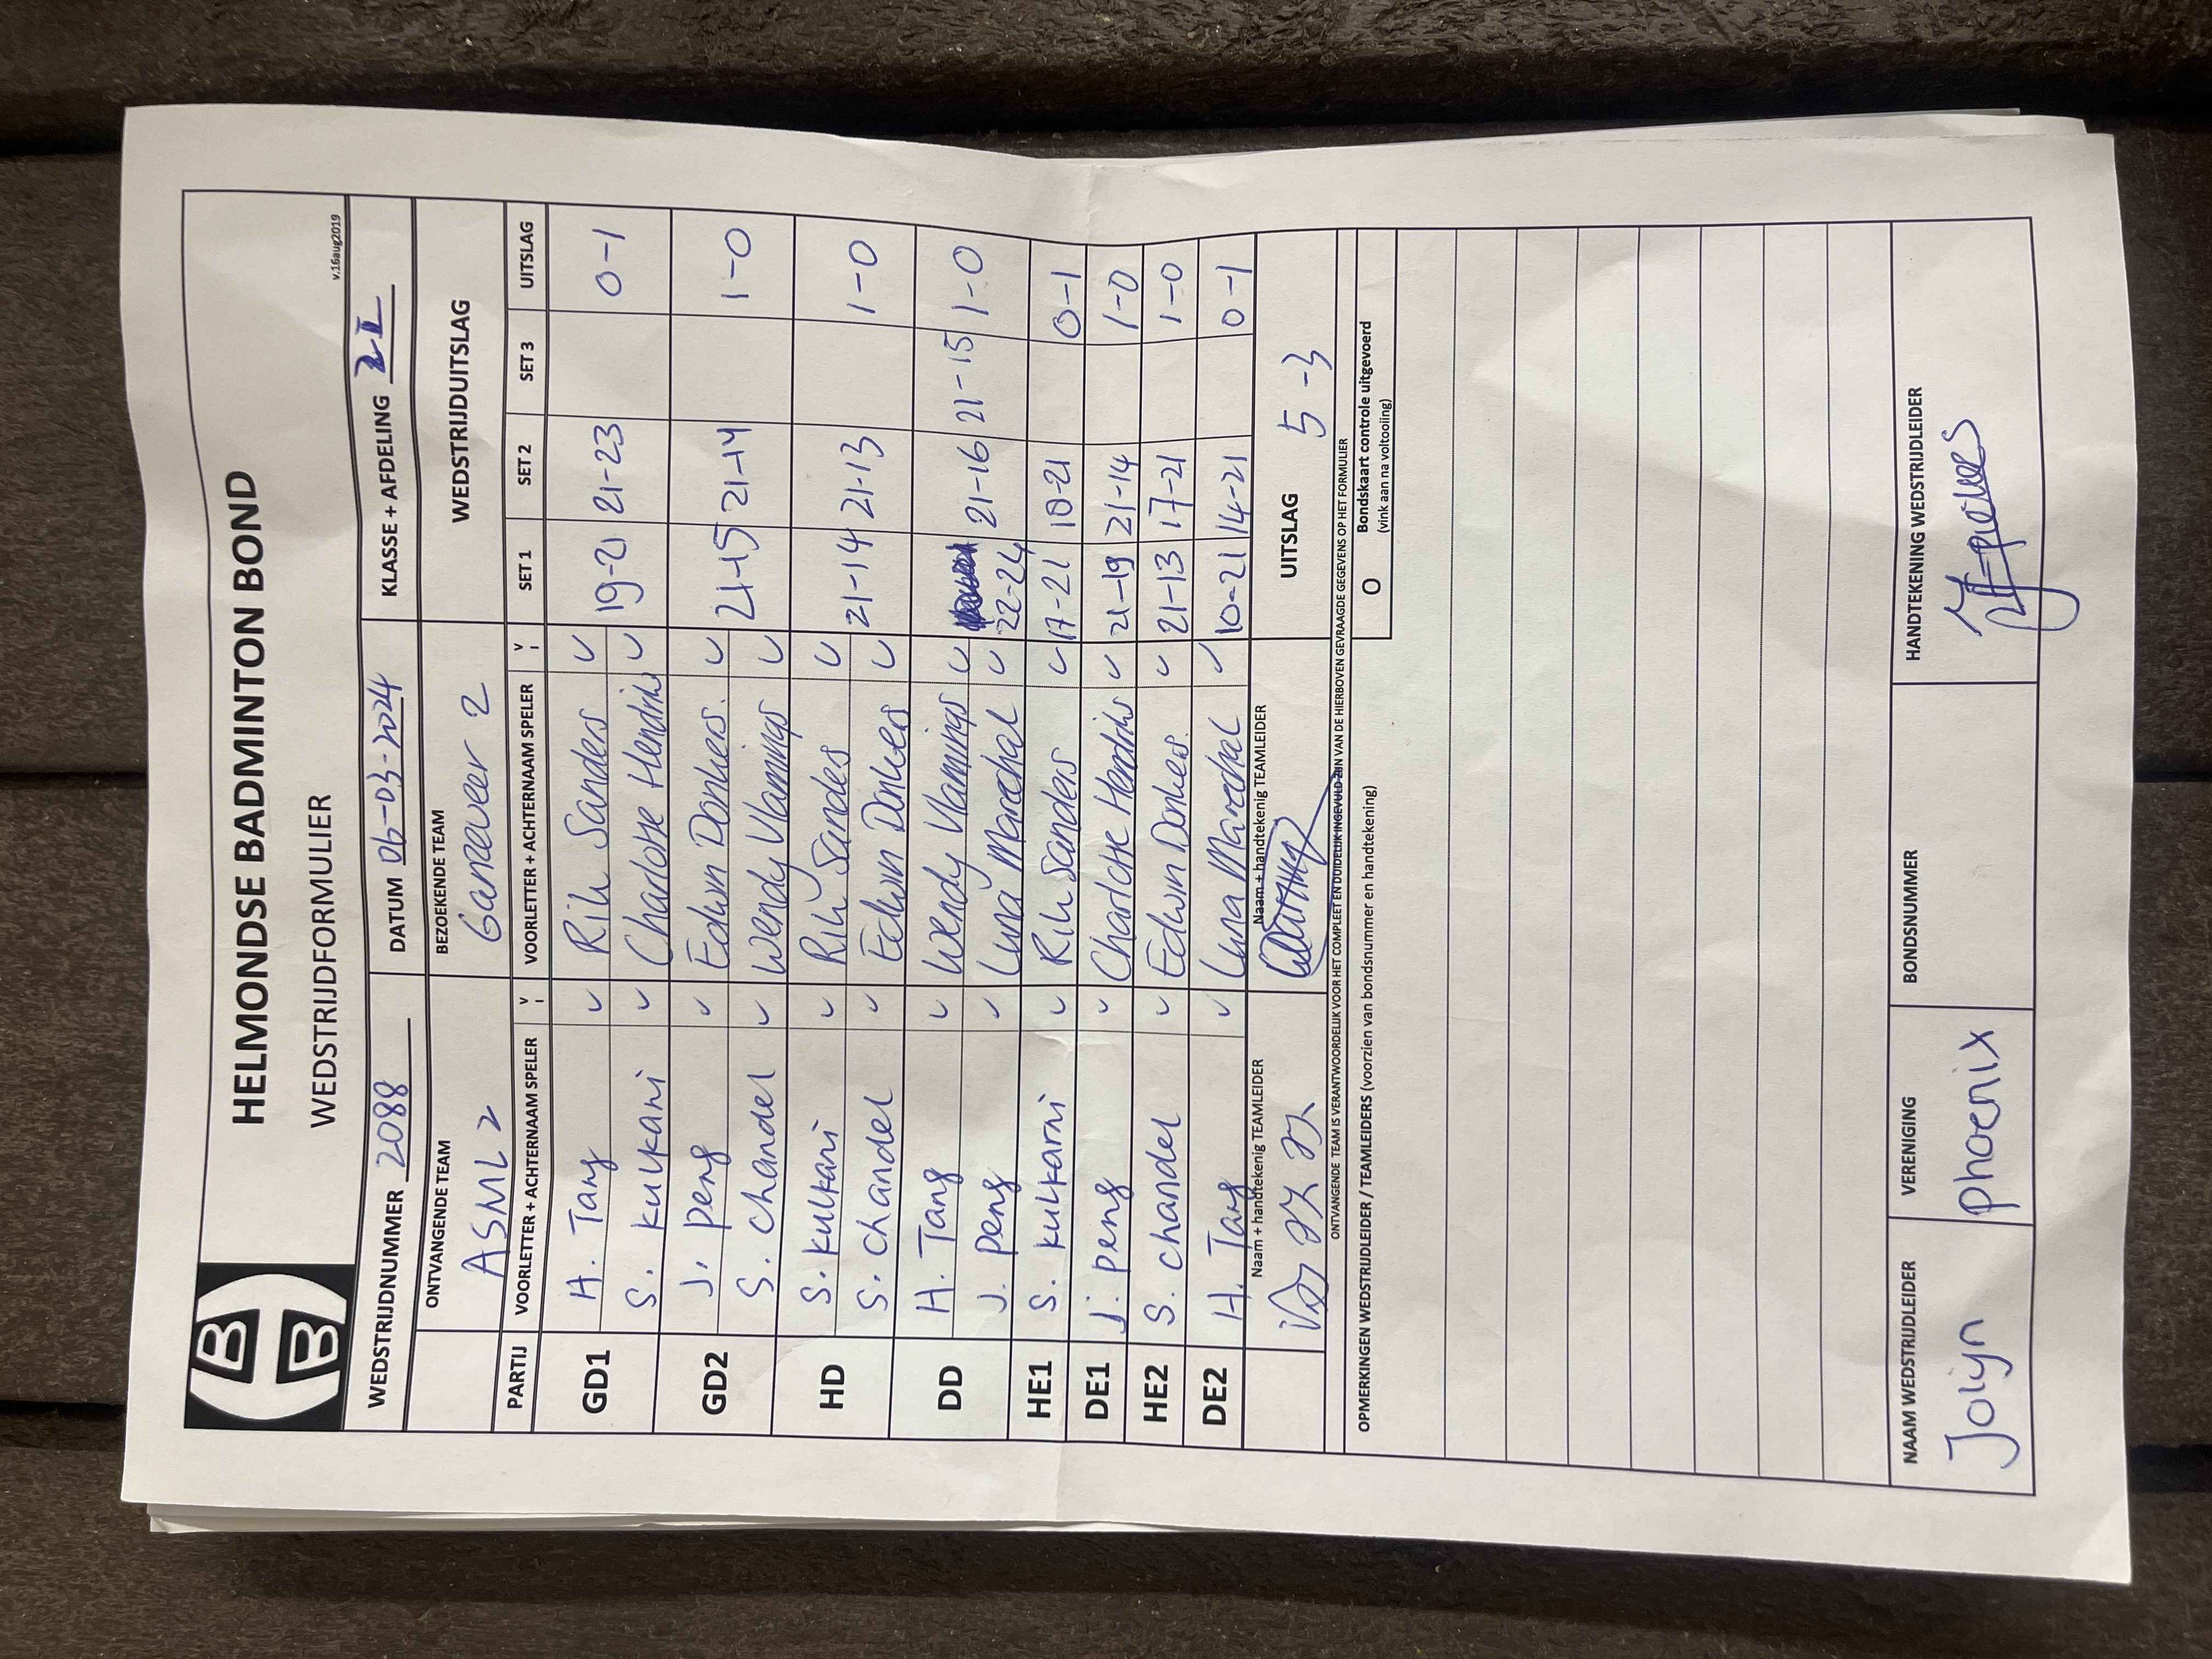 HELMONDSE BADMINTON BOND
WEDSTRIJDFORMULIER
v.16aug2019
WEDSTRIJDNUMMER 2088 DATUM 06-03-2024 KLASSE + AFDELING
ONTVANGENDE TEAM BEZOEKENDE TEAM WEDSTRIJDUITSLAG
ASML 2 Ganzeveer 2
PARTIJ VOORLETTER + ACHTERNAAM SPELER V VOORLETTER + ACHTERNAAM SPELER V SET 1 SET 2 SET 3 UITSLAG
GD1 H. Tang Rik Sanders 19-21 21-23 0-1
S. kulkani Charlotte Hendriks
GD2 J. peng Edwin Donkers. 21-15 21-14 1-0
S. chandel Wendy Vlamings
HD S. kulkani Rik Sanders 21-14 21-13 1-0
S. chandel Edwin Donkers
DD H. Tang Wendy Vlamings 22-24 21-16 21-15 1-0
J. peng Luna Marechal
HE1 S. kulkarni Rik Sanders 17-21 18-21 0-1
DE1 J. peng Charlotte Hendriks 21-19 21-14 1-0
HE2 S. chandel Edwin Donkers. 21-13 17-21 1-0
DE2 H. Tang Luna Marechal 10-21 14-21 0-1
Naam + handtekenig TEAMLEIDER Naam + handtekenig TEAMLEIDER UITSLAG 5-3
ONTVANGENDE TEAM IS VERANTWOORDELIJK VOOR HET COMPLEET EN DUIDELIJK INGEVULD ZIJN VAN DE HIERBOVEN GEVRAAGDE GEGEVENS OP HET FORMULIER
OPMERKINGEN WEDSTRIJDLEIDER / TEAMLEIDERS (voorzien van bondsnummer en handtekening)
O Bondskaart controle uitgevoerd
(vink aan na voltooiing)
NAAM WEDSTRIJDLEIDER VERENIGING BONDSNUMMER HANDTEKENING WEDSTRIJDLEIDER
Jolijn phoenix